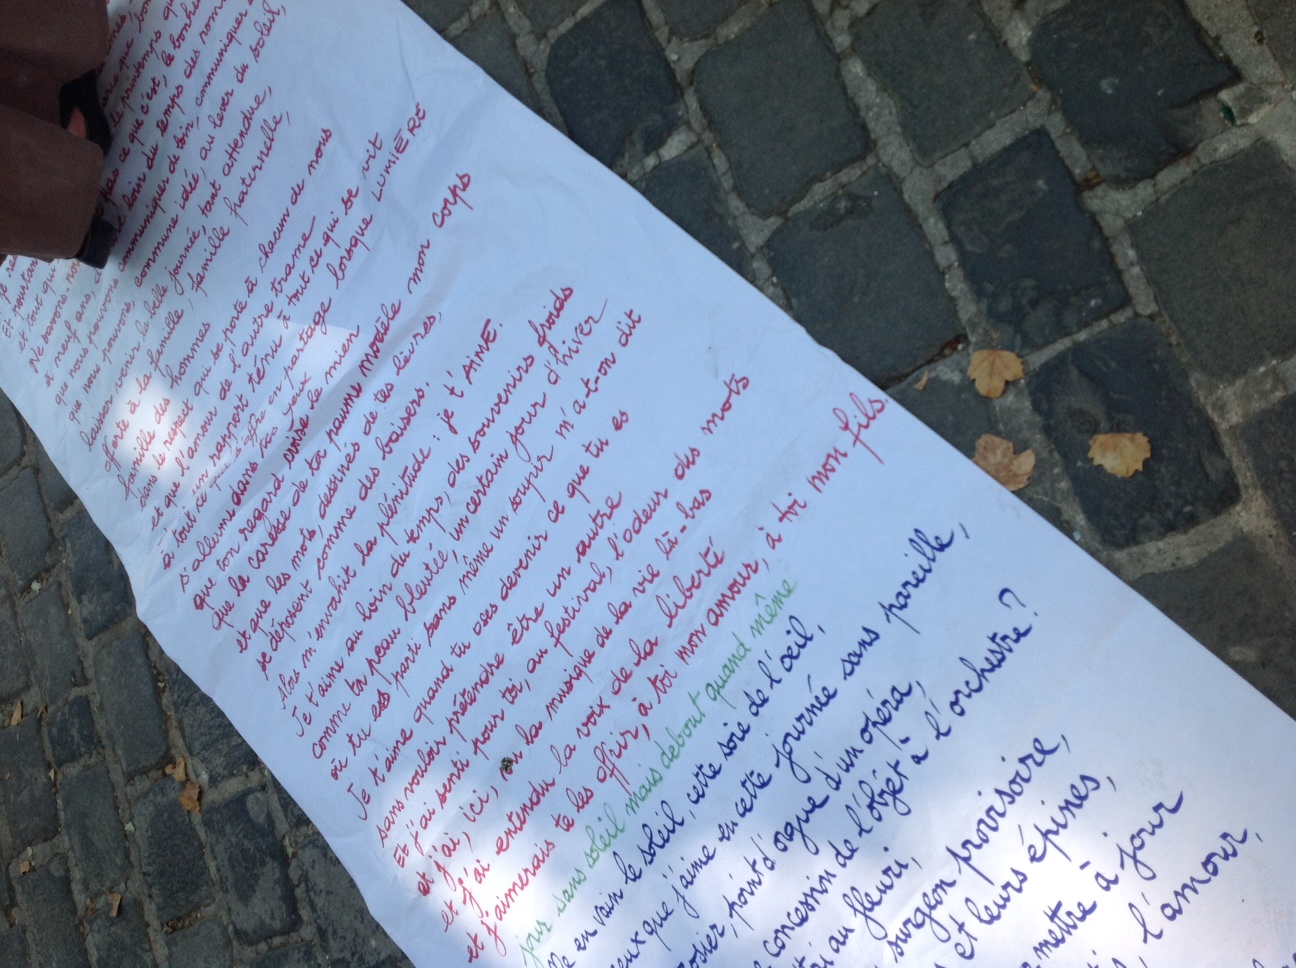 le printemps
pas ce que c'est, le bonheur
loin du temps des
et neuf ans, communiquer de loin, communiquer
que nous pouvons
que nous pouvons, commune idée, au lever du soleil,
laisser voir la belle journée, tant attendue,
offerte à la famille, famille fraternelle,
famille des hommes
dans le respect qui se porte à chacun de nous
et que l'amour de l'autre trame
un rapport ténu à tout ce qui se vit
à tout ce qui s'offre en partage lorsque LUMIÈRE
s'allume dans tes yeux
que ton regard croise le mien
que la caresse de ta paume modèle mon corps
et que les mots, dessinés de tes lèvres,
se déposent comme des baisers.
Alors m'envahit la plénitude : je t'AIME.
Je t'aime au loin du temps, des souvenirs froids
comme ta peau bleutée, un certain jour d'hiver
où tu es parti sans même un soupir m'a-t-on dit
Je t'aime quand tu oses devenir ce que tu es
sans vouloir prétendre être un autre
Et j'ai senti pour toi, au festival, l'odeur des mots
et j'ai, ici, on la musique de la vie là-bas
et j'ai entendu la voix de la liberté
et j'aimerais te les offrir, à toi mon amour, à toi mon fils.
jour sans soleil mais debout quand même
en vain le soleil, cette soie de l'oeil,
que j'aime en cette journée sans pareille,
point d'orgue d'un opéra,
concession de l'objet à l'orchestre ?
au fleuri,
surgeon provisoire,
et leurs épines,
mettre à jour
l'amour,